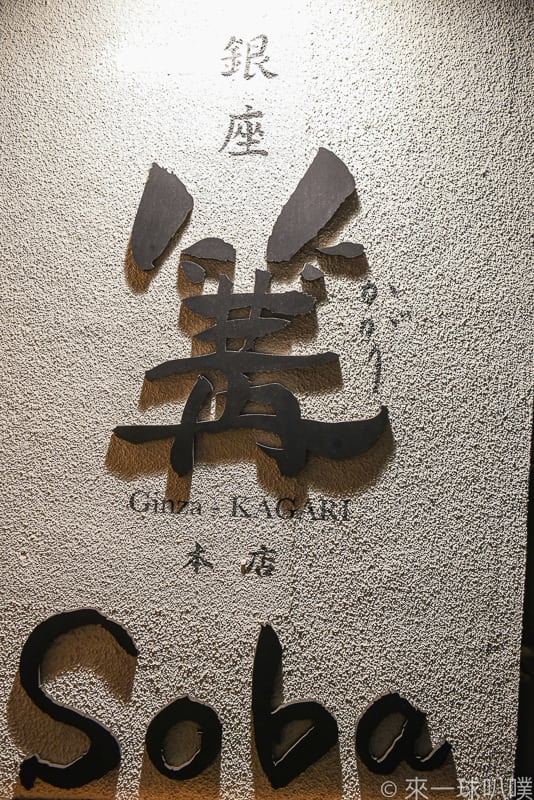 銀座
篝
かがり
Ginza - KAGARI
本店
Soba
© 來一球叭噗